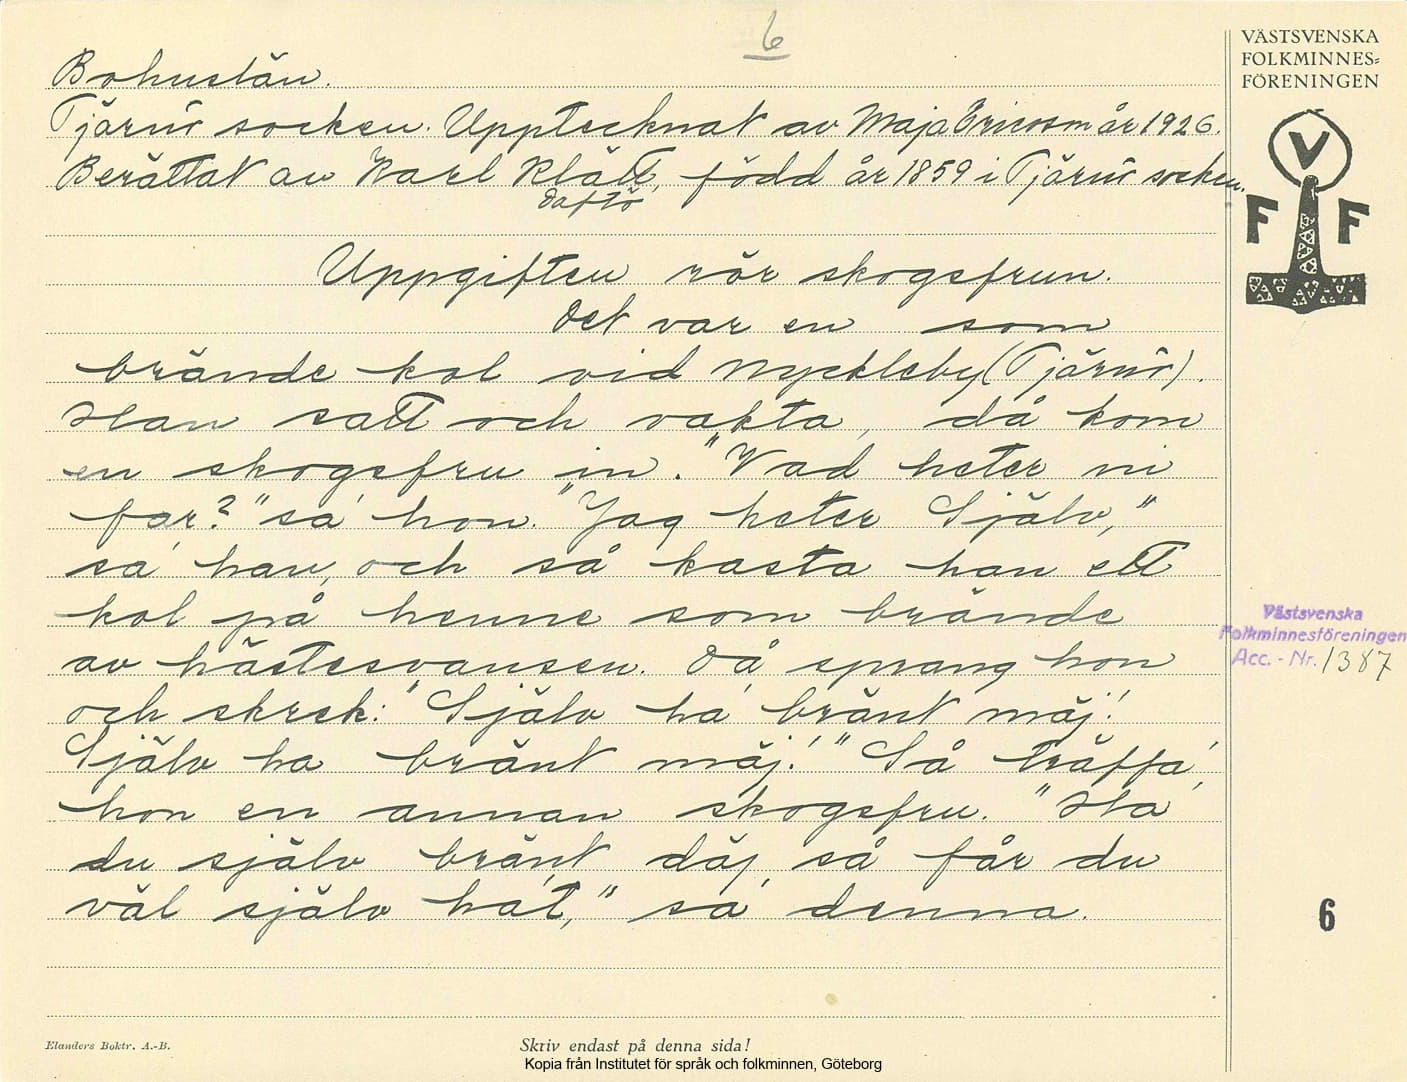 6
VÄSTSVENSKA
FOLKMINNES=
FÖRENINGEN
V
F F
Bohuslän.
Tjärnö socken. Upptecknat av Maja Ericson år 1926.
Berättat av Karl Klätt, född år 1859 i Tjärnö socken.
Daftö
Uppgiften rör skogsfrun.
Det var en som
brände kol vid Myckleby (Tjärnö).
Han satt och vakta, då kom
en skogsfru in. "Vad heter ni
far?" sa' hon. "Jag heter Själv,"
sa' han, och så kasta han ett
kol på henne som brände
av hästesvansen. Då sprang hon
och skrek: "Själv ha' bränt mäj!
Själv ha bränt mäj!" Så träffa'
hon en annan skogsfru. "Ha
du själv bränt däj, så får du
väl själv ha't," sa' denna.
Västsvenska
Folkminnesföreningen
Acc. - Nr. 1387
6
Elanders Boktr. A.-B.
Skriv endast på denna sida!
Kopia från Institutet för språk och folkminnen, Göteborg